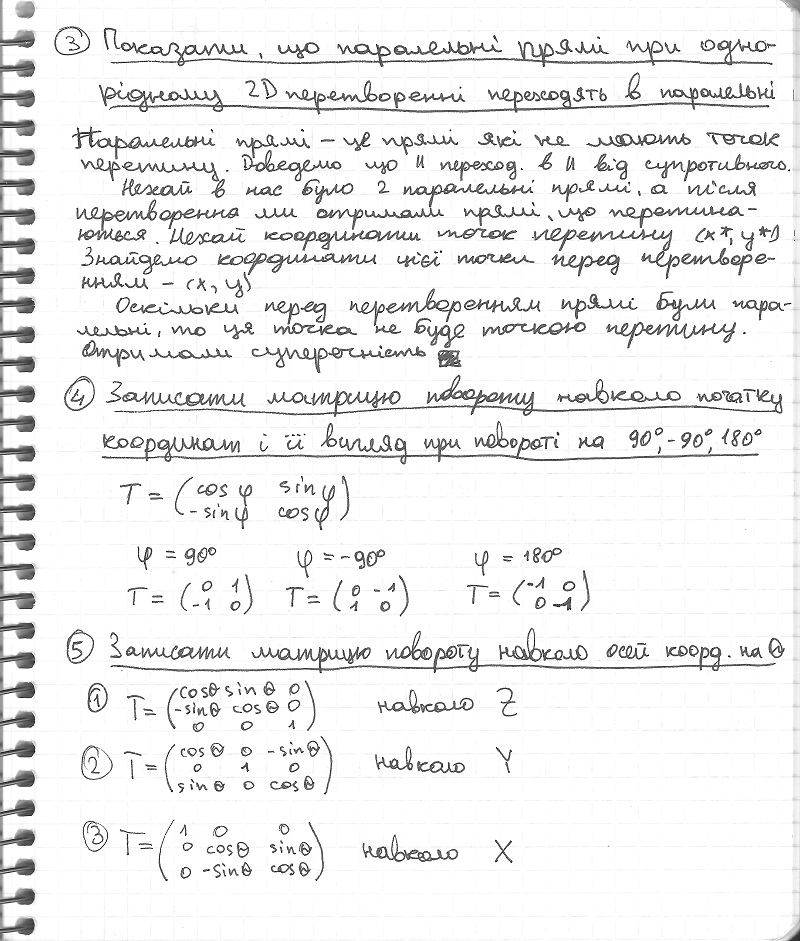 ③ Показати, що паралельні прямі при одно-
рідному 2D перетворенні переходять в паралельні
Паралельні прямі – це прямі які не мають точок
перетину. Доведемо що || переход. в || від супротивного.
Нехай в нас було 2 паралельні прямі, а після
перетворення ми отримали прямі, що перетина-
ються. Нехай координати точок перетину (x*, y*)
Знайдемо координати цієї точки перед перетворе-
нням – (x, y)
Оскільки перед перетворенням прямі були пара-
лельні, то ця точка не буде точкою перетину.
Отримали суперечність
④ Записати матрицю повороту навколо початку
координат і її вигляд при повороті на 90°, -90°, 180°
T = (cos φ sin φ
-sin φ cos φ)
φ = 90° φ = -90° φ = 180°
T = (0 1 T = (0 -1 T = (-1 0
-1 0) 1 0) 0 -1)
⑤ Записати матрицю повороту навколо осей коорд. на θ
① T = (cosθ sinθ 0
-sinθ cosθ 0 навколо Z
0 0 1)
② T = (cosθ 0 -sinθ
0 1 0 навколо Y
sinθ 0 cosθ)
③ T = (1 0 0
0 cosθ sinθ навколо X
0 -sinθ cosθ)